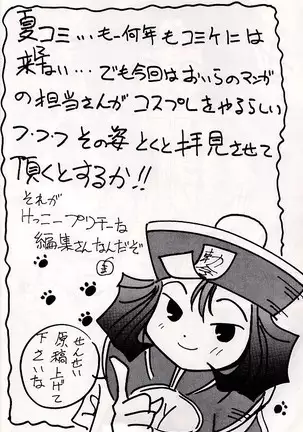 夏コミ…もー何年もコミケには
来てない…でも今回はおいらのマンガ
の担当さんがコスプレをやるらしい
フ・フ・フ その姿 とくと拝見させて
頂くとするか!!
それが
けっこープリチーな
編集さんなんだぞ
せんせい
原稿上げて
下さいな